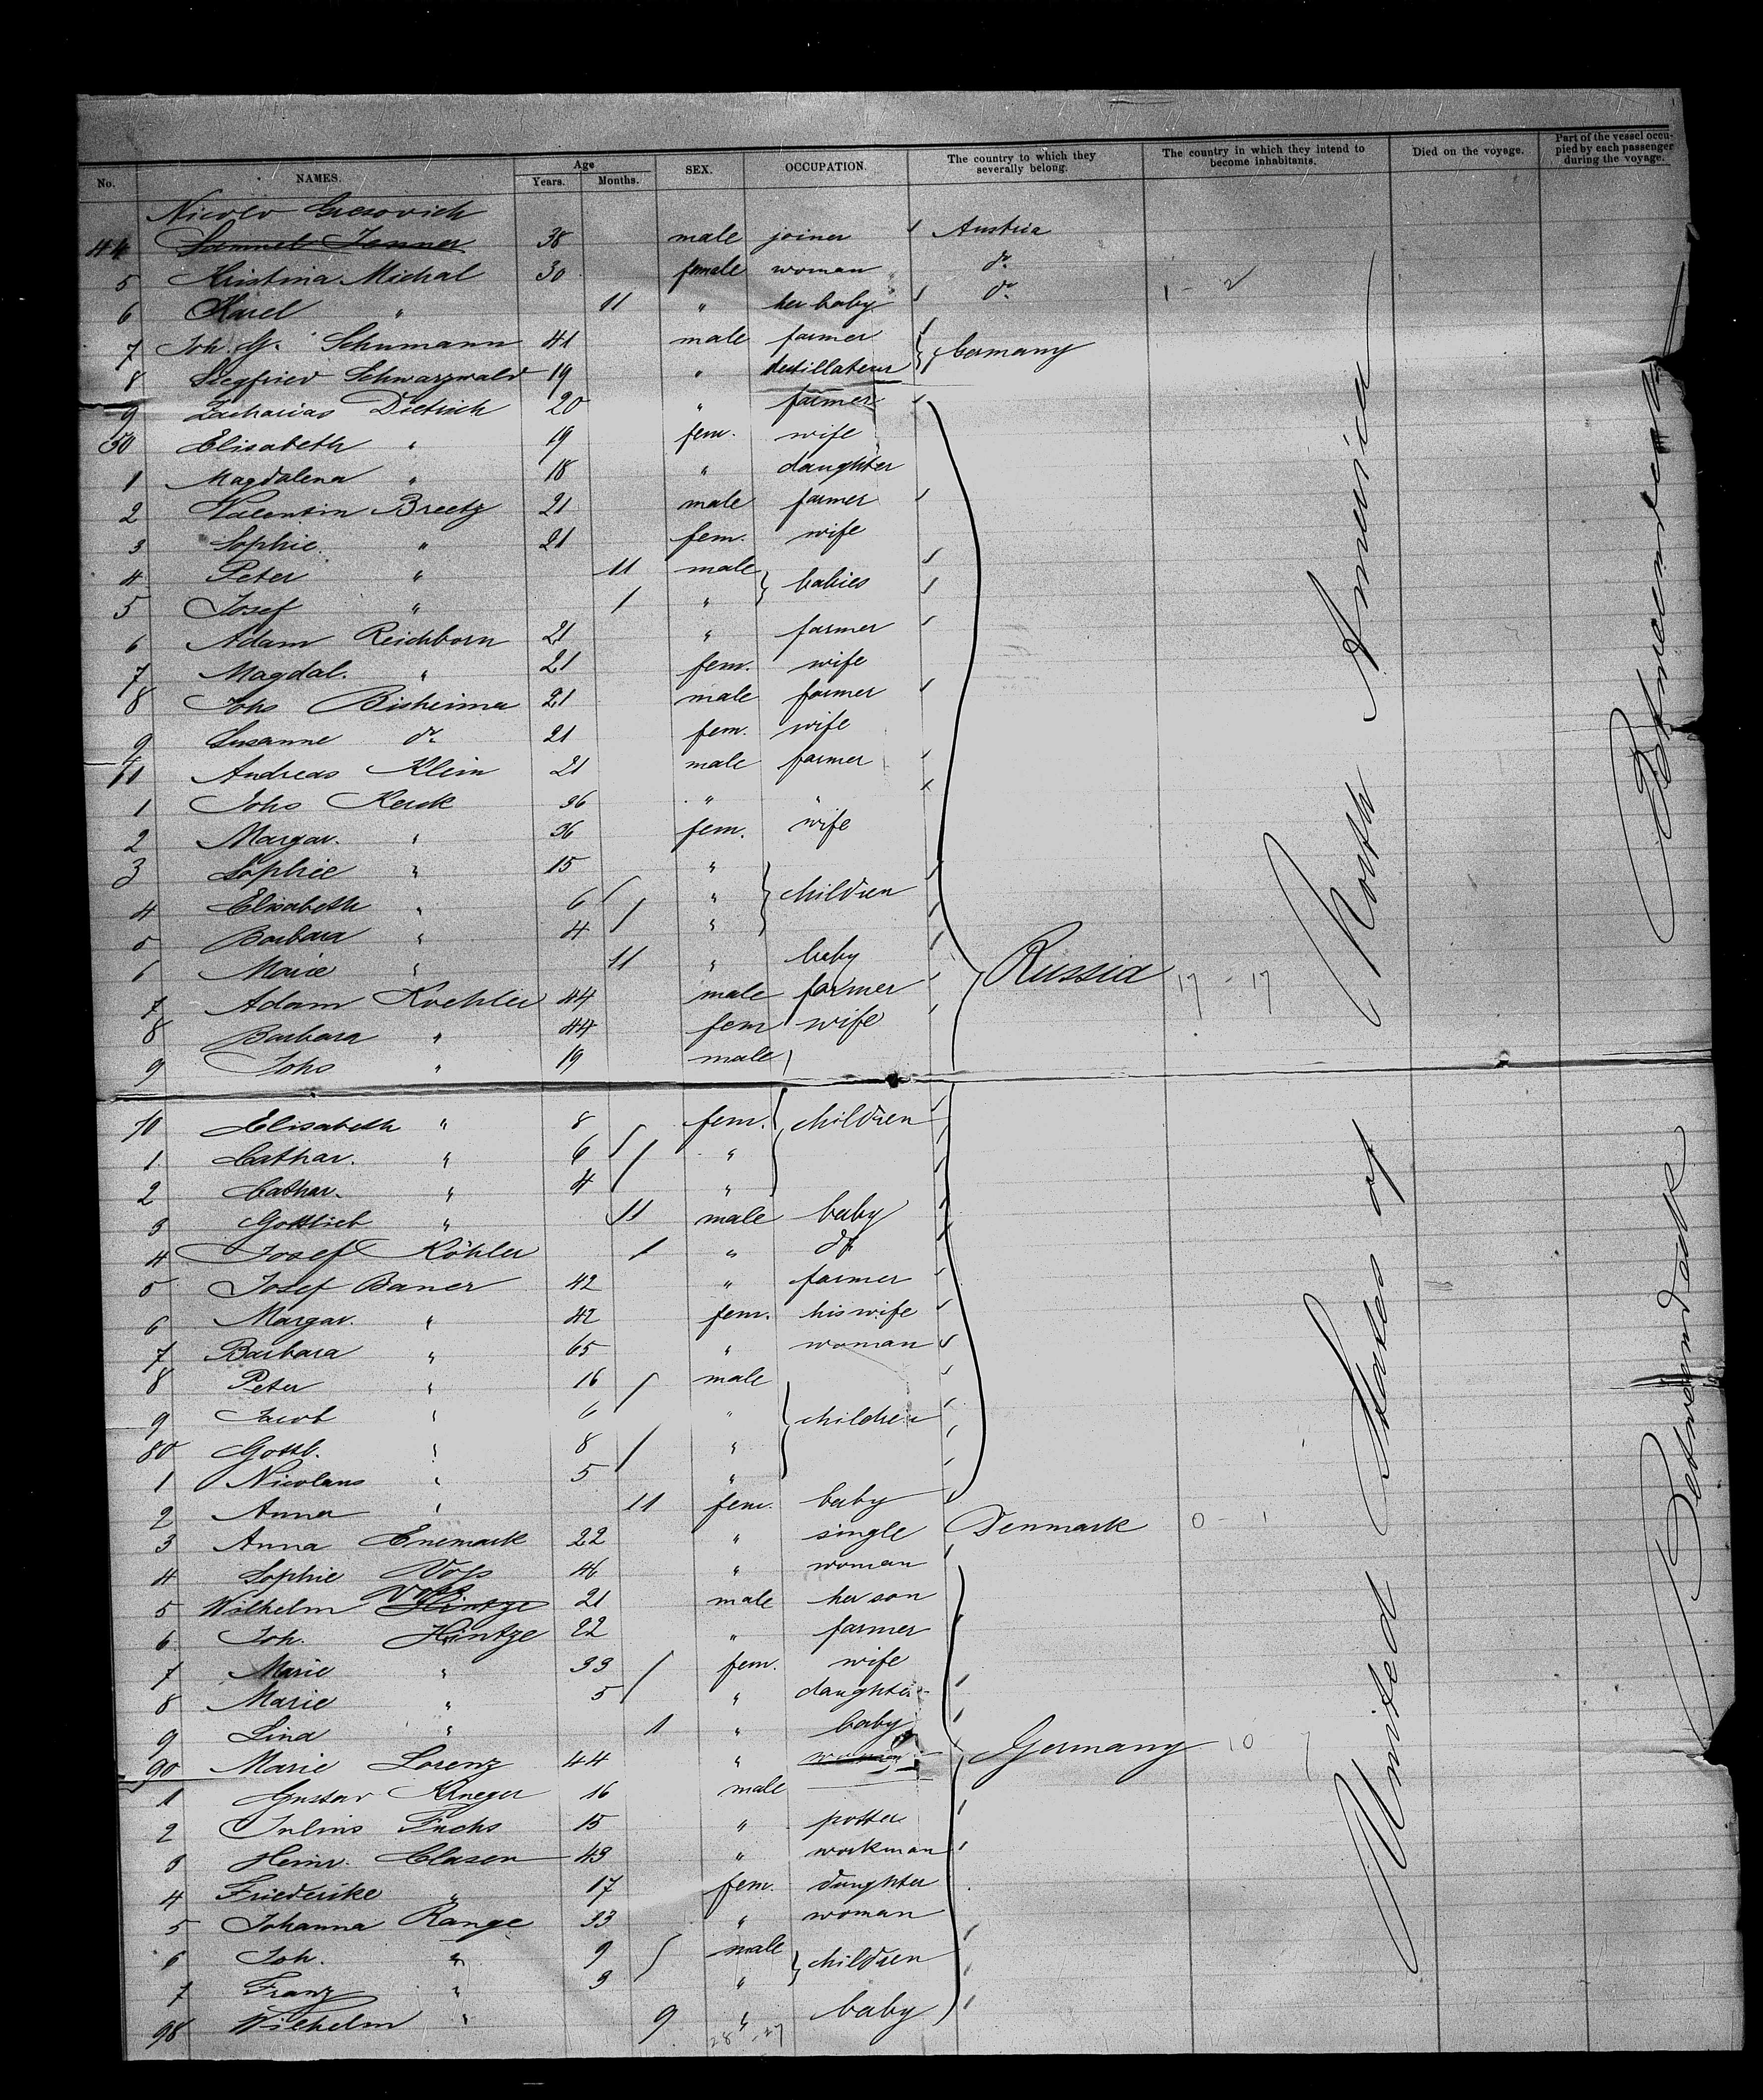 No. NAMES. Age Years. Months. SEX. OCCUPATION. The country to which they severally belong. The country in which they intend to become inhabitants. Died on the voyage. Part of the vessel occupied by each passenger during the voyage.
Nicolo
44 Samuel Jenner 38 male joiner Austria
5 Kristina Michal 30 female woman do
6 Karel " 11 " her baby do 1 - 2
7 Joh. G. Schumann 41 male farmer Germany
8 Siegfried Schwarzwald 19 " destillateur
9 Zacharias Dietrich 20 " farmer
50 Elisabeth " 19 fem. wife
1 Magdalena " 18 " daughter
2 Valentin Breetz 21 male farmer
3 Sophie " 21 fem. wife
4 Peter " 11 male babies
5 Josef " 1 "
6 Adam Reichborn 21 " farmer
7 Magdal. " 21 fem. wife
8 Johs Bisheimer 21 male farmer
9 Susanne do 21 fem. wife
61 Andreas Klein 21 male farmer
1 Johs Kerck 36 " "
2 Margar. " 36 fem. wife
3 Sophie " 15 "
4 Elisabeth " 6 " children
5 Barbara " 4 "
6 Marie " 11 " baby
7 Adam Koehler 44 male farmer Russia 17 - 17
8 Barbara " 44 fem wife
9 Johs " 19 male
70 Elisabeth " 8 fem. children
1 Cathar. " 6 "
2 Cathar. " 4 "
3 Gottlieb " 11 male baby
4 Josef Köhler 1 " do
5 Josef Bauer 42 " farmer
6 Margar. " 42 fem. his wife
7 Barbara " 65 " woman
8 Peter " 16 male
9 Jacob " 6 " children
80 Gottl. " 8 "
1 Nicolaus " 5 "
2 Anna " 11 fem. baby
3 Anna Enemark 22 " single Denmark 0 - 1
4 Sophie Voss 46 " woman
5 Wilhelm Hintze Voss 21 male her son
6 Joh. Hintze 22 " farmer
7 Marie " 33 fem. wife
8 Marie " 5 " daughter
9 Lina " 1 " baby
90 Marie Lorenz 44 " woman Germany 10 7
1 Gustav Krueger 16 male
2 Julius Fuchs 15 " potter
3 Heinr. Clasen 43 " workman
4 Friederike " 17 fem. daughter
5 Johanna Range 33 " woman
6 Joh. " 9 male children
7 Franz " 3 "
98 Wilhelm " 9 " baby
28 - 27
United States of North America
Betweendeck Betweendeck